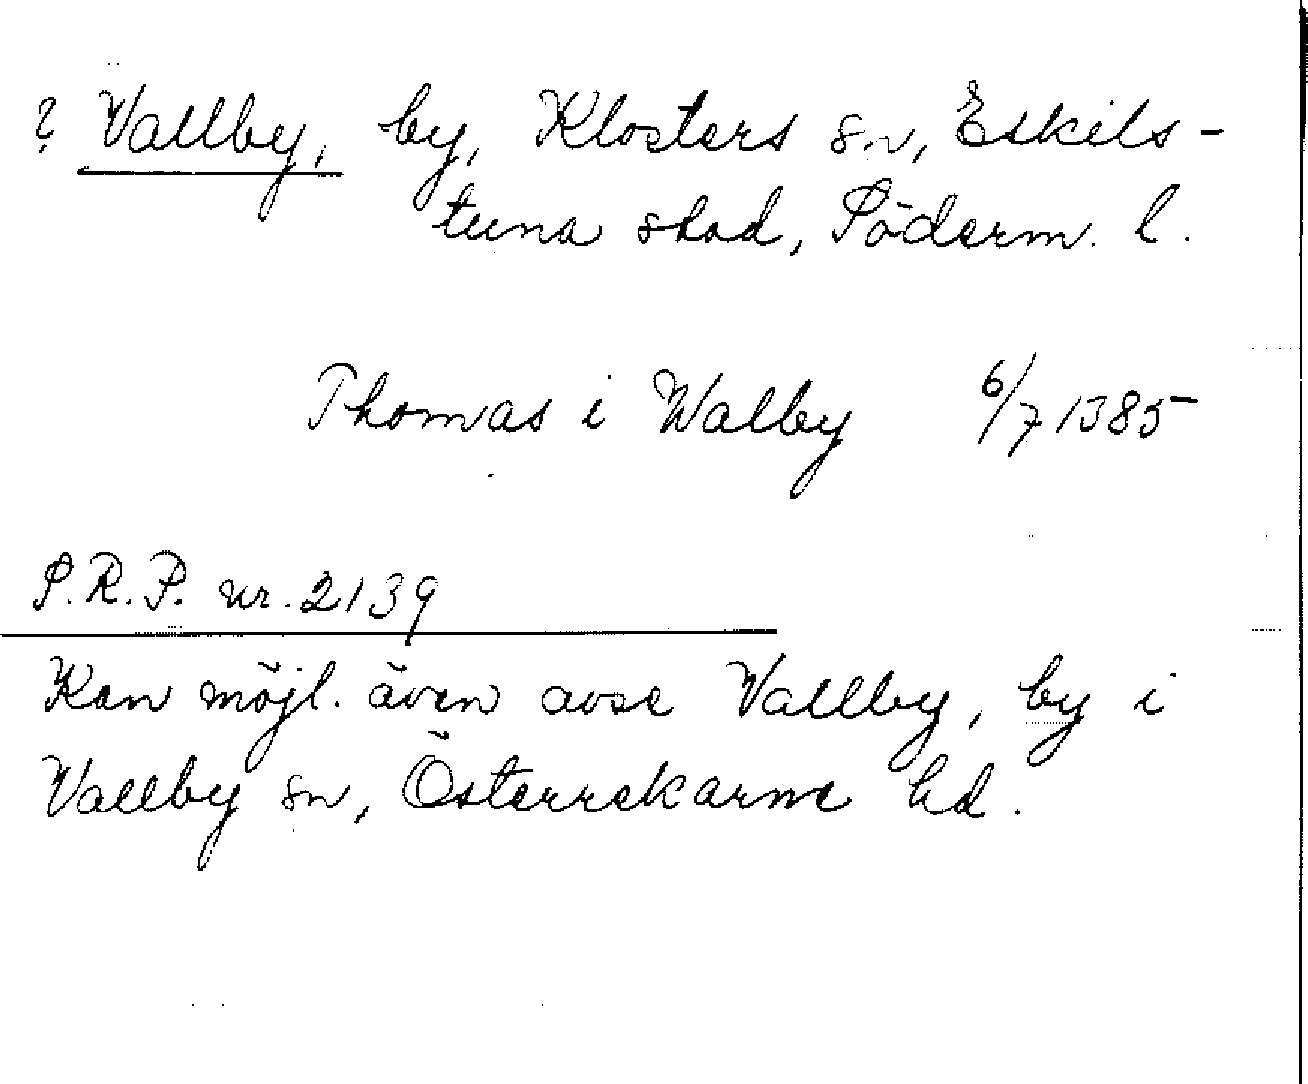 ? Vallby, by, Klosters sn, Eskils-
tuna stad, Söderm. l.
Thomas i Walby 6/7 1385
S.R.P. nr. 2139
Kan möjl. även avse Vallby, by i
Vallby sn, Österrekarne hd.